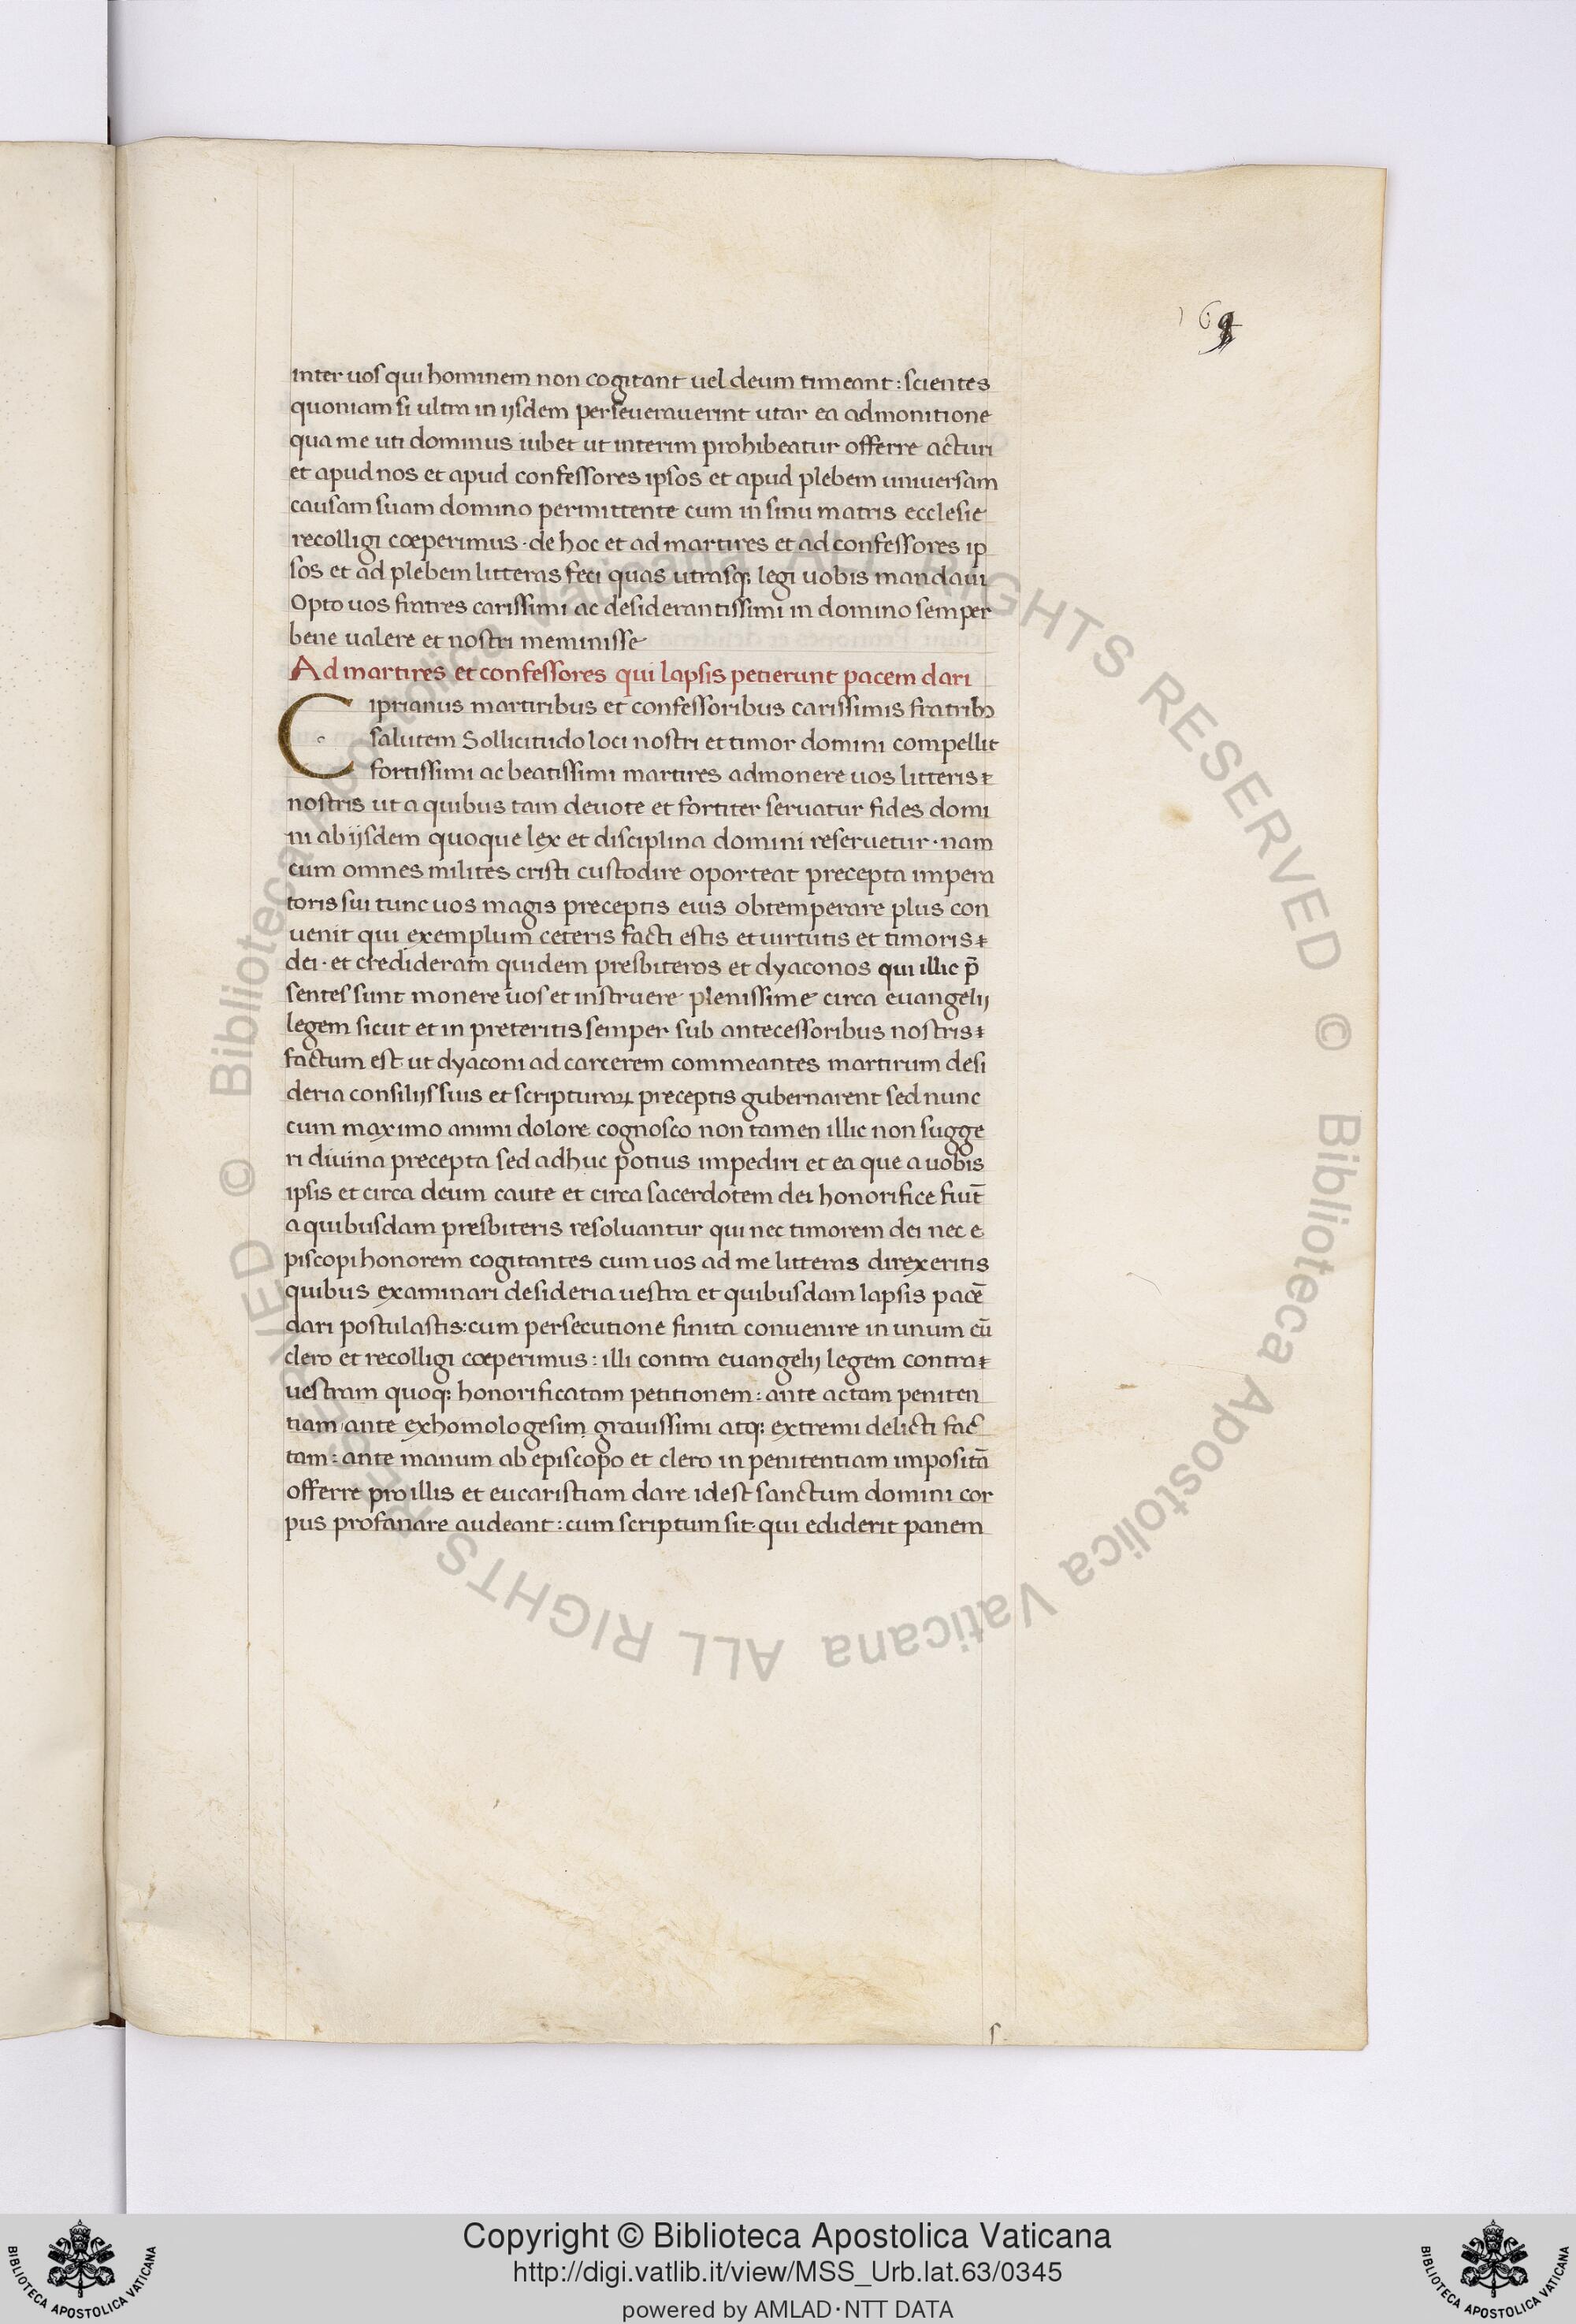 169
inter uos qui hominem non cogitant uel deum timeant: scientes
quoniam si ultra in ijsdem perseuerauerint utar ea admonitione
qua me uti dominus iubet ut interim prohibeatur offerre acturi
et apud nos et apud confessores ipsos et apud plebem uniuersam
causam suam domino permittente cum in sinu matris ecclesie
recolligi cœperimus · de hoc et ad martires et ad confessores ip
sos et ad plebem litteras feci quas utrasq; legi uobis mandaui
Opto uos fratres carissimi ac desiderantissimi in domino semper
bene ualere et nostri meminisse
Ad martires et confessores qui lapsis petierunt pacem dari
Ciprianus martiribus et confessoribus carissimis fratrib;
salutem Sollicitudo loci nostri et timor domini compellit
fortissimi ac beatissimi martires admonere uos litteris
nostris ut a quibus tam deuote et fortiter seruatur fides domi
ni ab ijsdem quoque lex et disciplina domini reseruetur · nam
cum omnes milites cristi custodire oporteat precepta impera
toris sui tunc uos magis preceptis eius obtemperare plus con
uenit qui exemplum ceteris facti estis et uirtutis et timoris
dei · et credideram quidem presbiteros et dyaconos qui illic p̄
sentes sunt monere uos et instruere plenissime circa euangelij
legem sicut et in preteritis semper sub antecessoribus nostris
factum est ut dyaconi ad carcerem commeantes martirum desi
deria consilijs suis et scripturaꝝ preceptis gubernarent sed nunc
cum maximo animi dolore cognosco non tamen illic non sugge
ri diuina precepta sed adhuc potius impediri et ea que a uobis
ipsis et circa deum caute et circa sacerdotem dei honorifice fiut̄
a quibusdam presbiteris resoluantur qui nec timorem dei nec e
piscopi honorem cogitantes cum uos ad me litteras direxeritis
quibus examinari desideria uestra et quibusdam lapsis pacē
dari postulastis: cum persecutione finita conuenire in unum cū
clero et recolligi cœperimus: illi contra euangelij legem contra
uestram quoq; honorificatam petitionem: ante actam peniten
tiam ante exhomologesim grauissimi atq; extremi delicti fac
tam: ante manum ab episcopo et clero in penitentiam impositā
offerre pro illis et eucaristiam dare idest sanctum domini cor
pus profanare audeant: cum scriptum sit · qui ediderit panem
© Biblioteca Apostolica Vaticana ALL RIGHTS RESERVED © Biblioteca Apostolica Vaticana ALL RIGHTS RESERVED
Copyright © Biblioteca Apostolica Vaticana
http://digi.vatlib.it/view/MSS_Urb.lat.63/0345
powered by AMLAD·NTT DATA
BIBLIOTECA APOSTOLICA VATICANA
BIBLIOTECA APOSTOLICA VATICANA